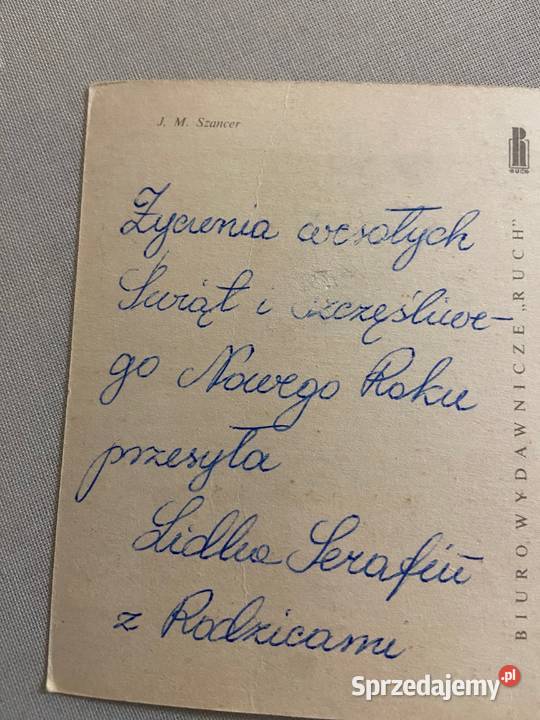 J. M. Szancer
RUCH
Życzenia wesołych
Świąt i szczęśliwe-
go Nowego Roku
przesyła
Lidka Serafin
z Rodzicami
BIURO WYDAWNICZE „RUCH”
Sprzedajemy.pl